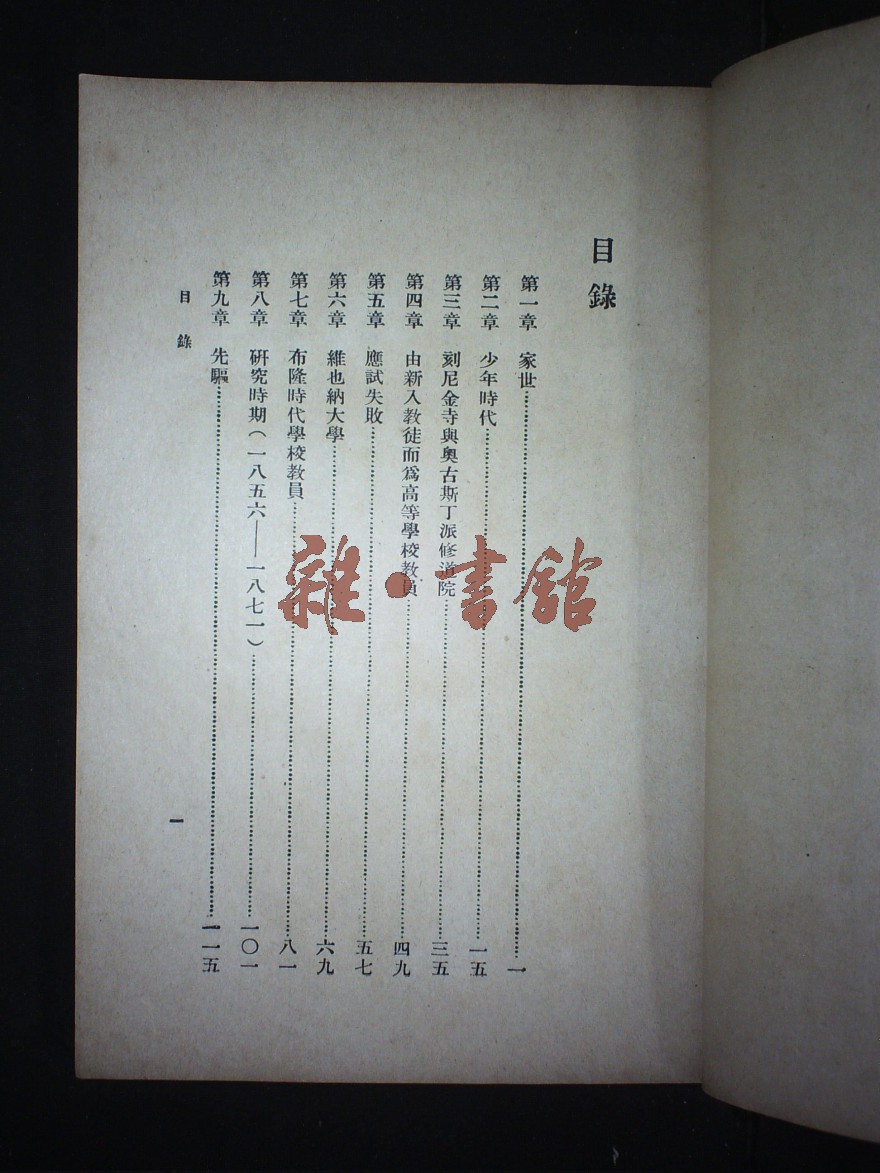 目錄
第一章 家世……一
第二章 少年時代……一五
第三章 刻尼金寺與奧古斯丁派修道院……三五
第四章 由新入教徒而爲高等學校教員……四九
第五章 應試失敗……五七
第六章 維也納大學……六九
第七章 布隆時代學校教員……八一
第八章 研究時期(一八五六——一八七一)……一〇一
第九章 先驅……一一五
目錄
一
雜·書館